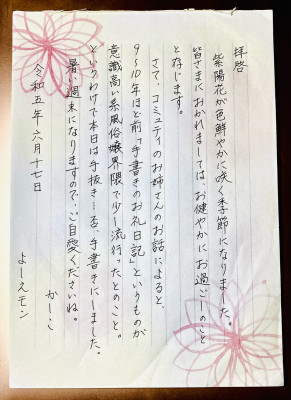 拝啓
紫陽花が色鮮やかに咲く季節になりました。
皆さまにおかれましては、お健やかにお過ごしのこと
と存じます。
さて、コミュニティのお姉さんのお話によると、
9〜10年ほど前「手書きのお礼日記」というものが
意識高い系風俗嬢界隈で少し流行ったとのこと。
というわけで本日は手抜き…否、手書きにしました。
暑い週末になりますので、ご自愛くださいね。
かしこ
令和五年六月十七日
よーえモン